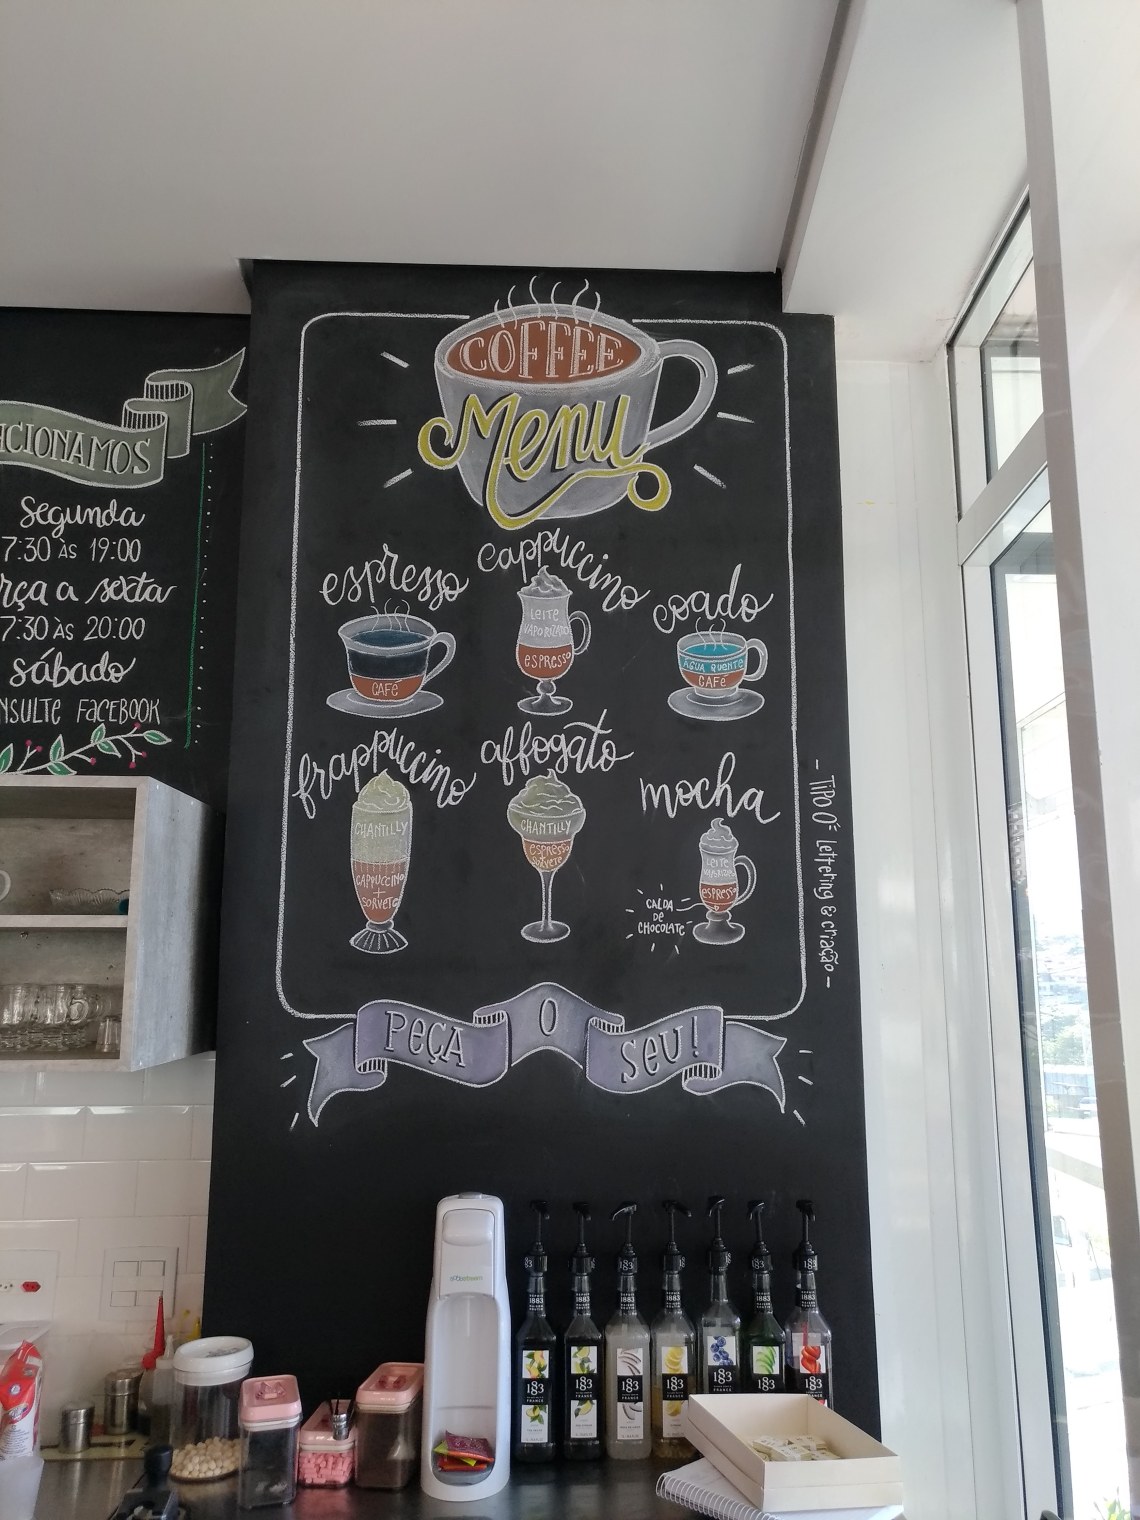 COFFEE
Menu
espresso
CAFÉ
cappuccino
LEITE
VAPORIZADO
ESPRESSO
coado
ÁGUA QUENTE
CAFÉ
frappuccino
CHANTILLY
CAPPUCCINO
+
SORVETE
affogato
CHANTILLY
ESPRESSO
SORVETE
mocha
LEITE
ESPRESSO
CALDA
DE
CHOCOLATE
PEÇA O SEU!
- TIPO Ó lettering & criação -
CIONAMOS
segunda
7:30 ÀS 19:00
rça a sexta
7:30 ÀS 20:00
sábado
NSULTE FACEBOOK
sodastream
1883
1883
1883
1883
1883
1883
1883